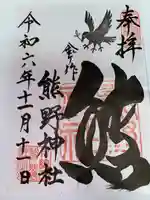 奉拝
熊
熊野神社
令和六年十一月十一日